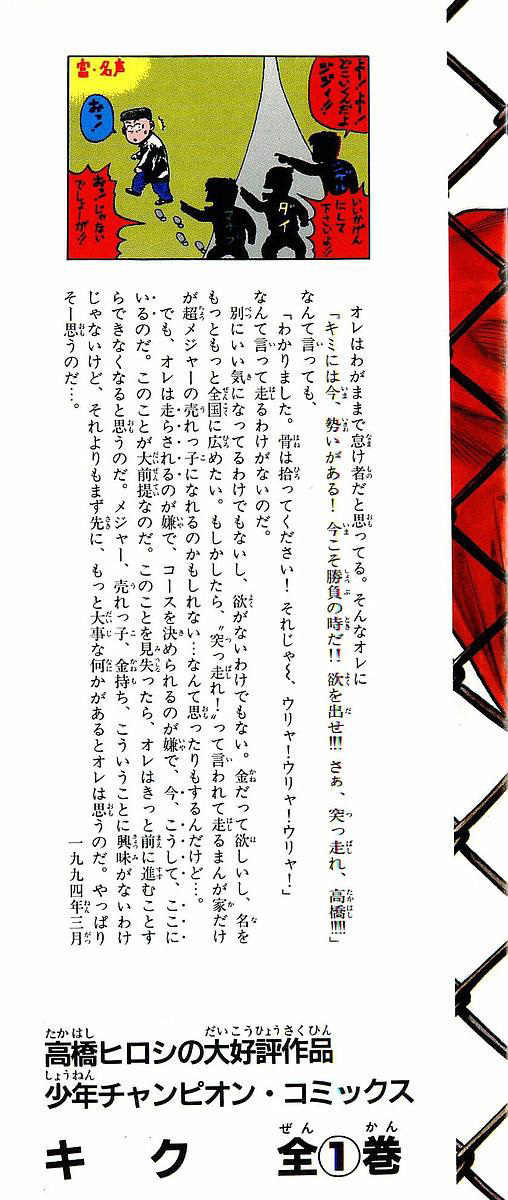 富・名声
よー！よー！
どこいくんだよ
ジジイ！！
いいかげん
にして
下さいよ！！
おっ！
ダイ
マナブ
おっじゃない
でしょーが！！
オレはわがままで怠け者だと思ってる。そんなオレに
「キミには今、勢いがある！今こそ勝負の時だ!!欲を出せ!!!さぁ、突っ走れ、高橋!!!!」
なんて言っても、
「わかりました。骨は拾ってください！それじゃ〜、ウリャ！ウリャ！ウリャ！」
なんて言って走るわけがないのだ。
別にいい気になってるわけでもないし、欲がないわけでもない。金だって欲しいし、名を
もっともっと全国に広めたい。もしかしたら、〝突っ走れ！〟って言われて走るまんが家だけ
が超メジャーの売れっ子になれるのかもしれない…なんて思ったりもするんだけど…。
でも、オレは走らされるのが嫌で、コースを決められるのが嫌で、今、こうして、ここに
いるのだ。このことが大前提なのだ。このことを見失ったら、オレはきっと前に進むことす
らできなくなると思うのだ。メジャー、売れっ子、金持ち、こういうことに興味がないわけ
じゃないけど、それよりもまず先に、もっと大事な何かがあるとオレは思うのだ。やっぱり
そー思うのだ…。
一九九四年三月
高橋ヒロシの大好評作品
少年チャンピオン・コミックス
キク 全①巻